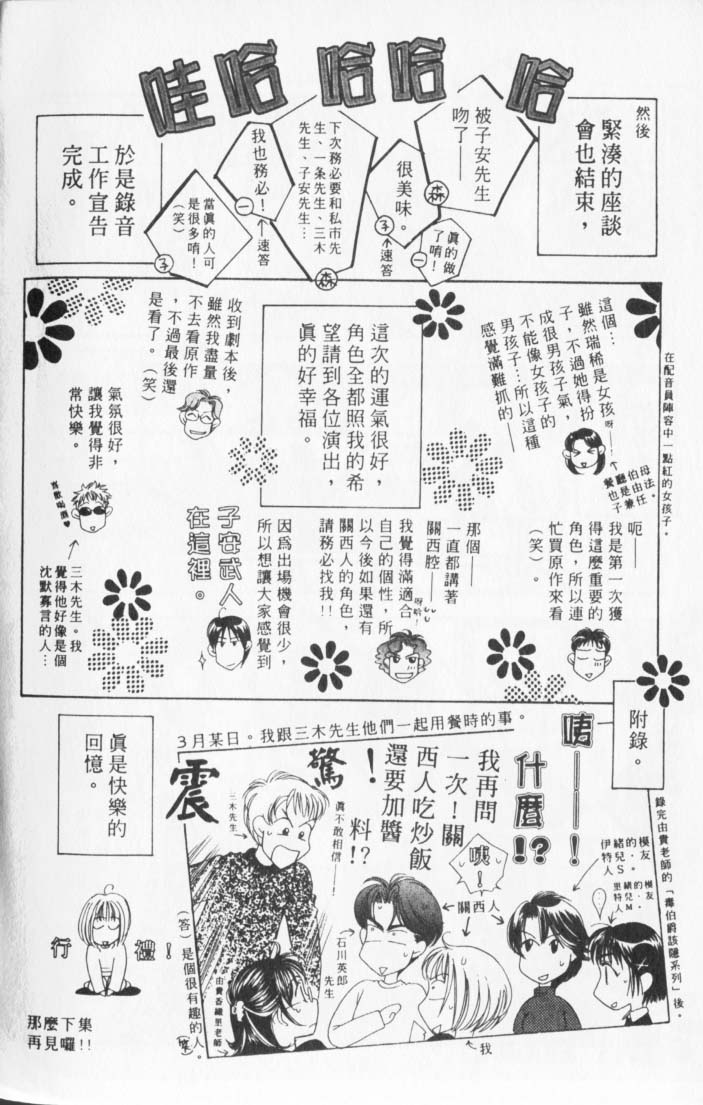 然後
緊湊的座談
會也結束，
哇哈 哈哈 哈
被子安先生
吻了——
森
真的做
了唷！
一
很美味。
子
←速答
下次務必要和私市先
生、一条先生、三木
先生、子安先生…
森
我也務必！
一
←速答
當真的人可
是很多唷！
（笑）
子
於是錄音
工作宣告
完成。
在配音員陣容中一點紅的女孩子。
這個…
雖然瑞稀是女孩
子，不過她得扮
成很男孩子氣，
不能像女孩子的
男孩子…所以這種
感覺滿難抓的——
呀——
伯母法。
餐廳是由任
也子兼
這次的運氣很好，
角色全都照我的希
望請到各位演出，
真的好幸福。
收到劇本後，
雖然我盡量
不去看原作
，不過最後還
是看了。（笑）
氣氛很好，
讓我覺得非
常快樂。
喜歡喝酒♥
三木先生。我
覺得他好像是個
沈默寡言的人…
呃——
我是第一次獲
得這麼重要的
角色，所以連
忙買原作來看
（笑）。
那個——
一直都講著
關西腔——
我覺得滿適合
自己的個性，所
以今後如果還有
關西人的角色，
請務必找我!!
呀哈！
因為出場機會很少，
所以想讓大家感覺到
子安武人
在這裡。
附錄。
錄完由貴老師的「毒伯爵該隱系列」後。
3月某日。我跟三木先生他們一起用餐時的事。
咦——！
什麼!?
我再問
一次！關
西人吃炒飯
還要加醬
料!?
驚！
震
咦！
真不敢相信——！
三木先生
關西人
石川英郎
先生
由貴香織里老師
我
模友
緒兒S
的・
伊特人
模友
緒兒M
的・
里特人
（答）是個很有趣的人。
真是快樂的
回憶。
行禮！
那麼下集
再見囉!!